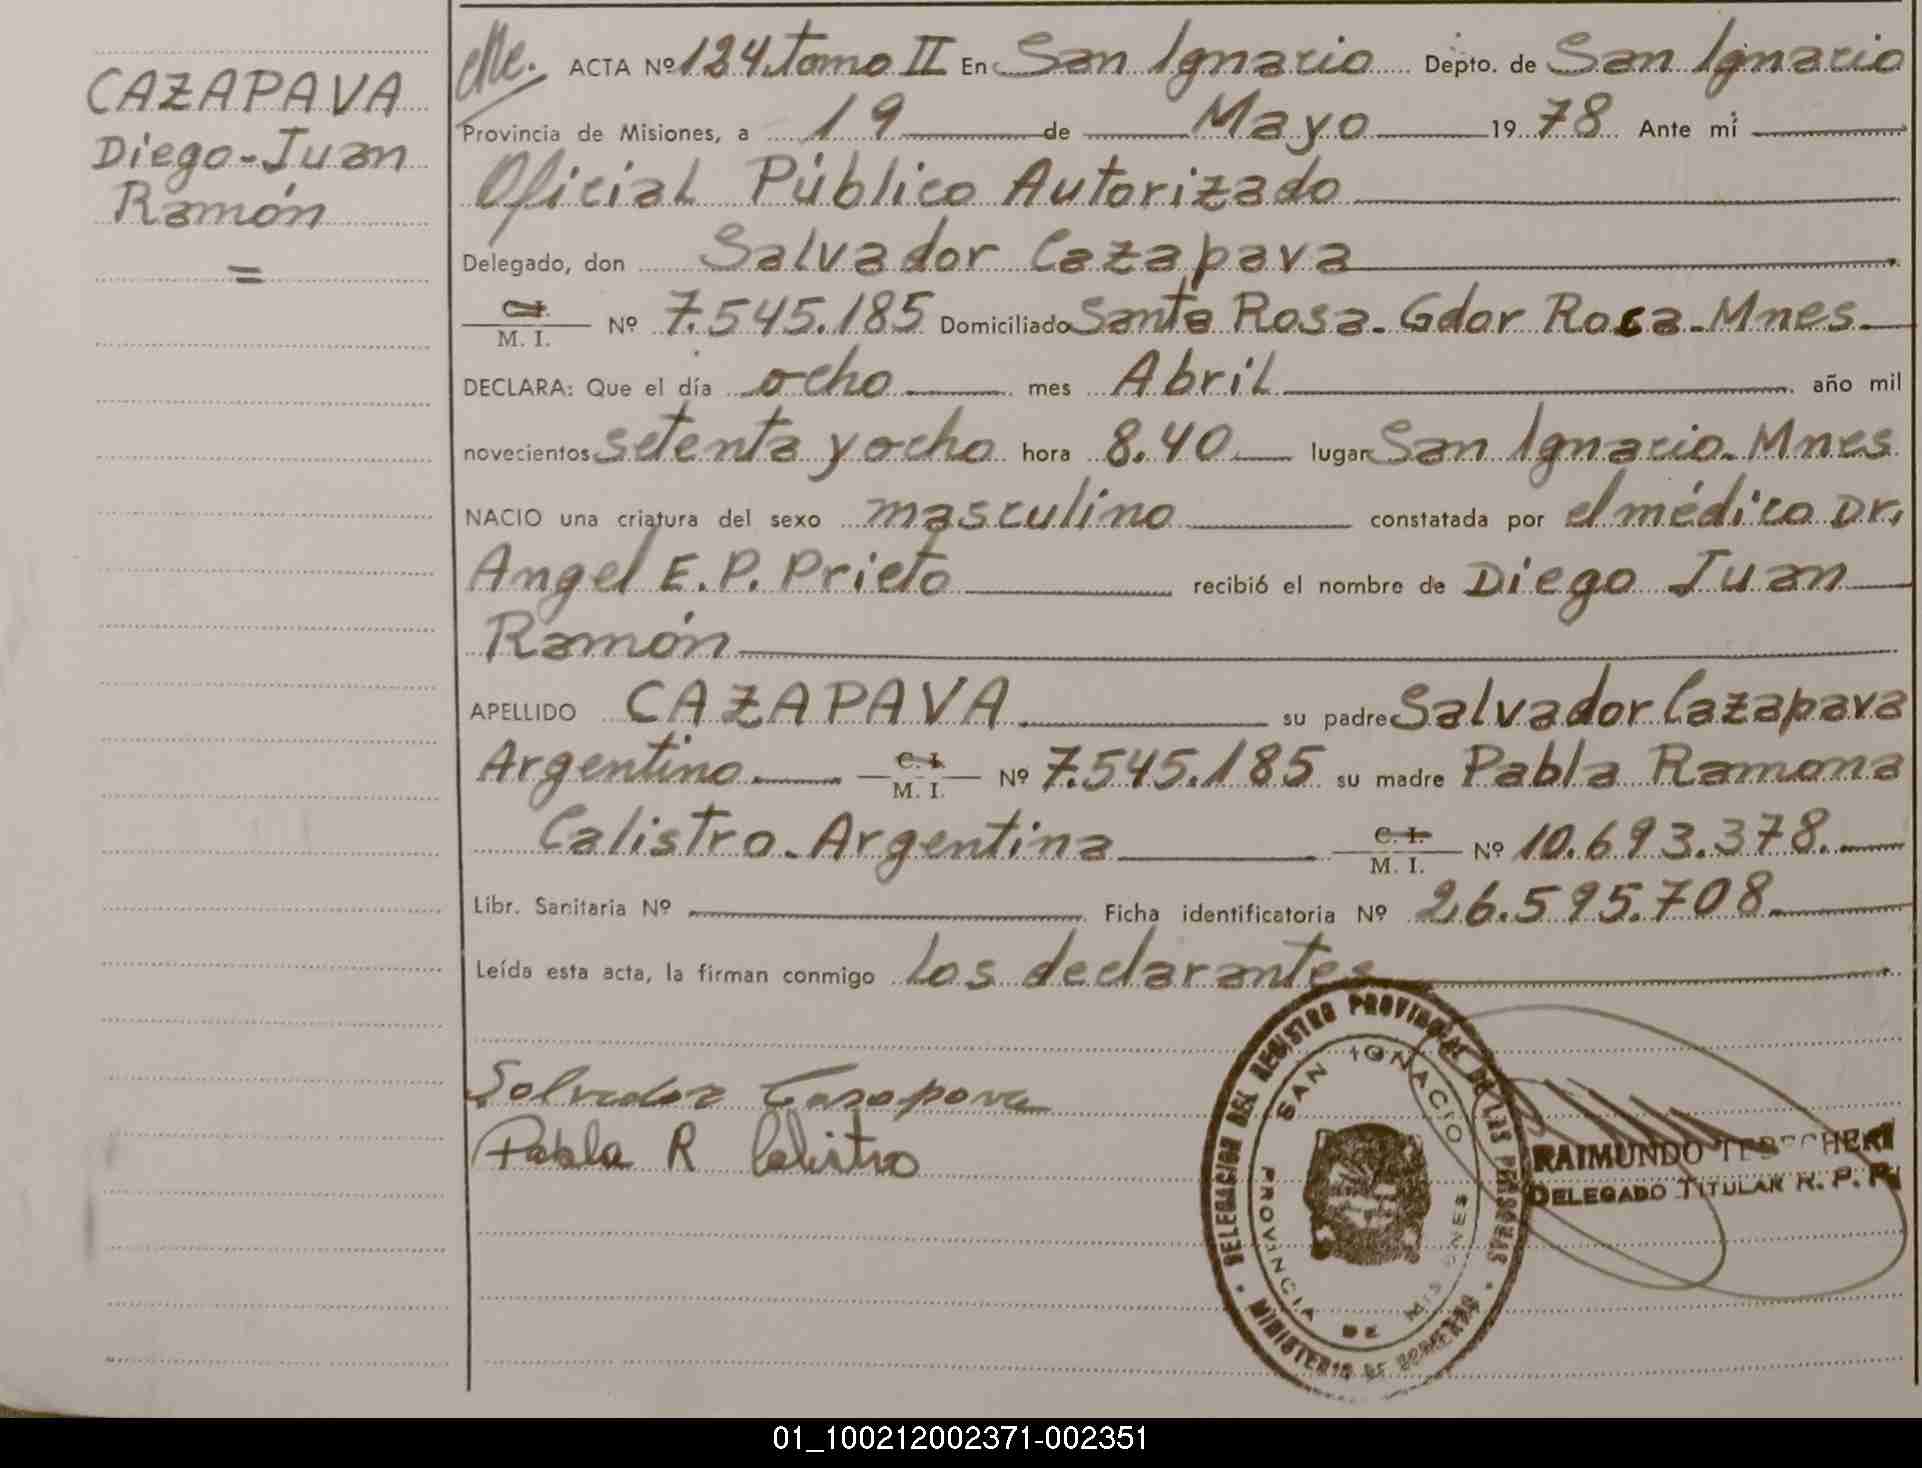 CAZAPAVA
Diego-Juan
Ramón
=
ACTA Nº 124 tomo II En San Ignacio Depto. de San Ignacio
Provincia de Misiones, a 19 de Mayo 1978 Ante mí
Oficial Público Autorizado
Delegado, don Salvador Cazapava
C.I. / M. I. Nº 7.545.185 Domiciliado Santa Rosa-Gdor Roca-Mnes
DECLARA: Que el día ocho mes Abril año mil
novecientos setenta y ocho hora 8.40 lugar San Ignacio-Mnes
NACIO una criatura del sexo masculino constatada por el médico Dr.
Angel E. P. Prieto recibió el nombre de Diego Juan
Ramón
APELLIDO CAZAPAVA su padre Salvador Cazapava
Argentino C. I. / M. I. Nº 7.545.185 su madre Pabla Ramona
Calistro-Argentina C. I. / M. I. Nº 10.693.378.
Libr. Sanitaria Nº Ficha identificatoria Nº 26.595.708
Leída esta acta, la firman conmigo los declarantes
Salvador Casapava
Pabla R Calistro
DELEGACION DEL REGISTRO PROVINCIAL DE LAS PERSONAS
SAN IGNACIO
PROVINCIA DE MISIONES
MINISTERIO DE GOBIERNO
RAIMUNDO
DELEGADO TITULAR R. P. P.
01_100212002371-002351